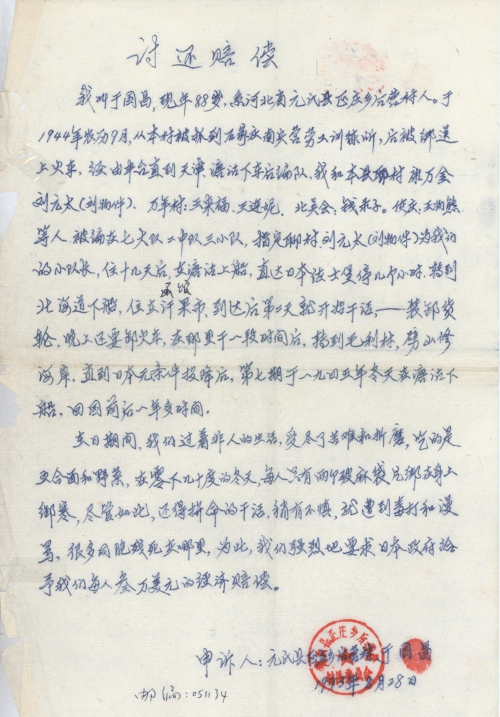 讨还赔偿
我叫于同昌,现年88岁,系河北省元氏县正庄乡后营村人。于
1944年农历9月,从本村被抓到石家庄南兵营劳工训练所,后被绑送
上火车,经由丰台直到天津塘沽下车后编队,我和本县邻村 张万金
刘元太(刘物件)、万年村:王来福、王进妮、北吴会:钱来子。
等人被编在七大队二中队三小队,指定邻村刘元太(刘物件)为我们
的小队长,住十几天后,在塘沽上船,直达日本 停几个小时.转到
北海道下船,住 市.到达后第二天就开始干活,——装卸货
轮,晚上还要卸火车,在那里干一段时间后,转到 ,劈山修
海岸,直到日本无条件投降后,第七期于一九四五年冬天在塘沽下
船,回国前后一年多时间。
在日期间,我们过着非人的生活,受尽了苦难和折磨,吃的是
五合面和野菜,在零下几十度的冬天,每人只有两个破麻袋片绑在身上
御寒,尽管如此,还得拼命的干活,稍有不慎,就遭到毒打和漫
骂,很多同胞残死在哪里,为此,我们强烈地要求日本政府给
予我们每人叁万美元的经济赔偿。
申诉人:元氏县正庄乡后营村 于同昌
月28日
邮编:051134